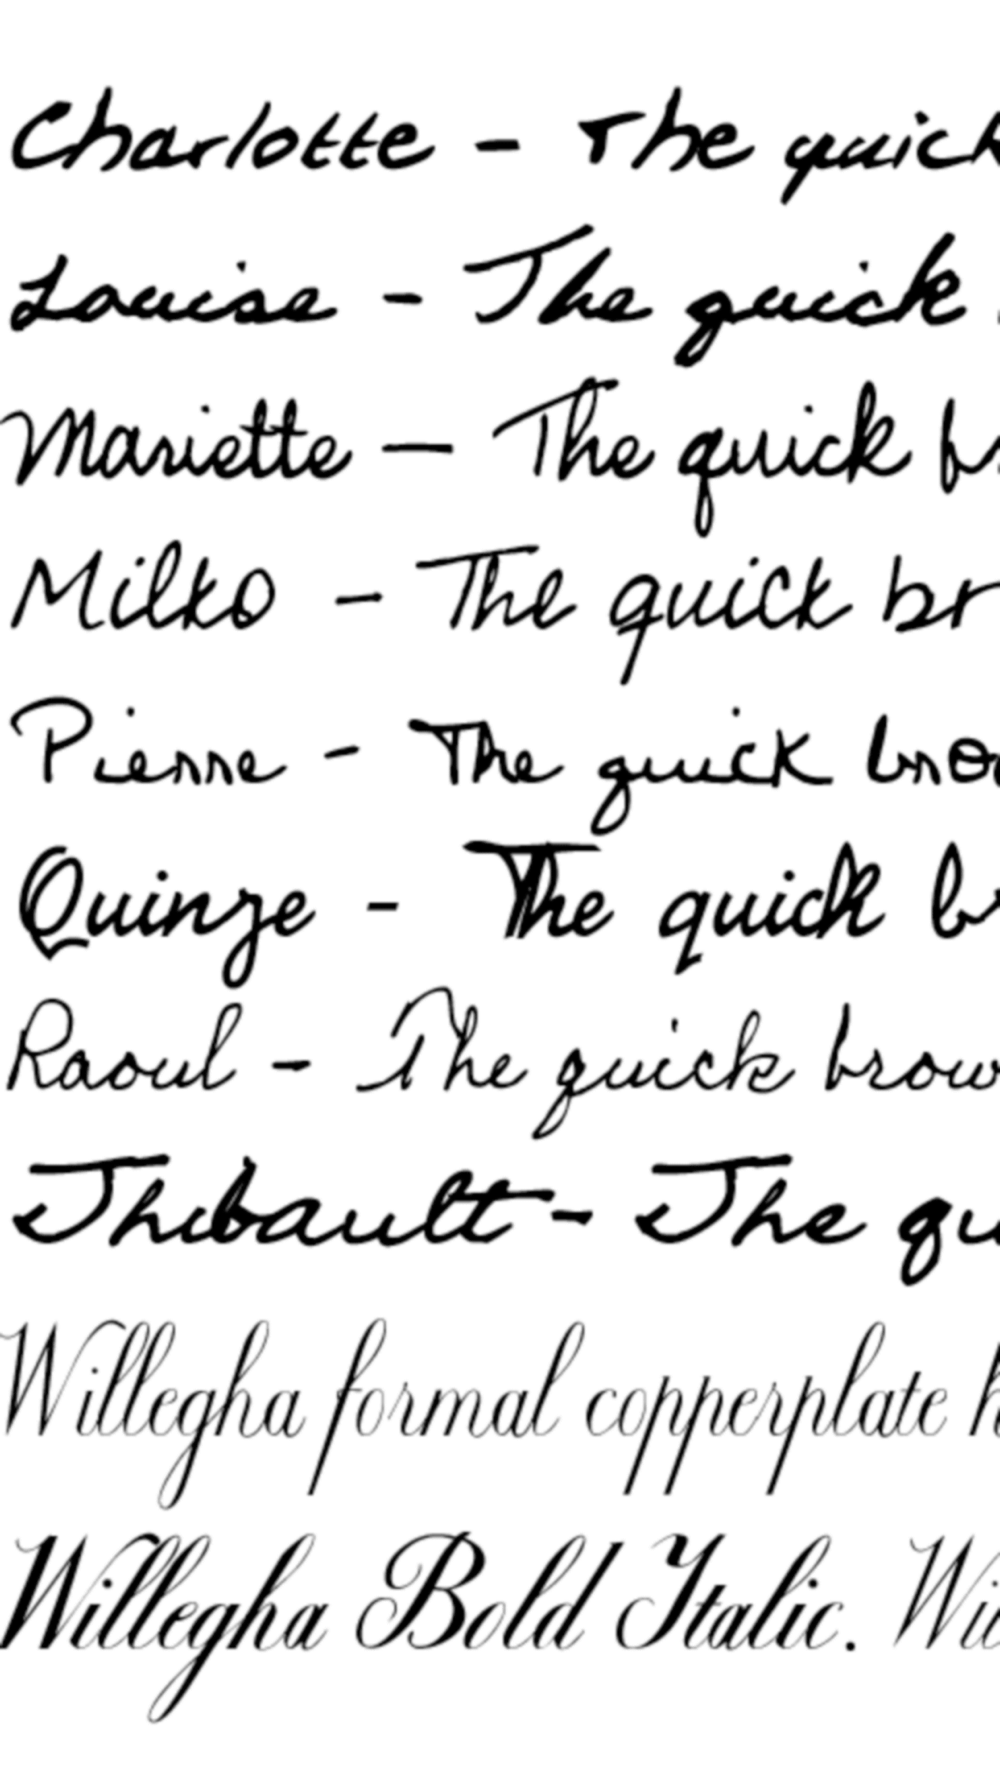 Charlotte - The quick
Louise - The quick
Mariette - The quick br
Milko - The quick br
Pierre - The quick bro
Quinze - The quick b
Raoul - The quick brow
Thibault - The qu
Willegha formal copperplate h
Willegha Bold Italic. Wil